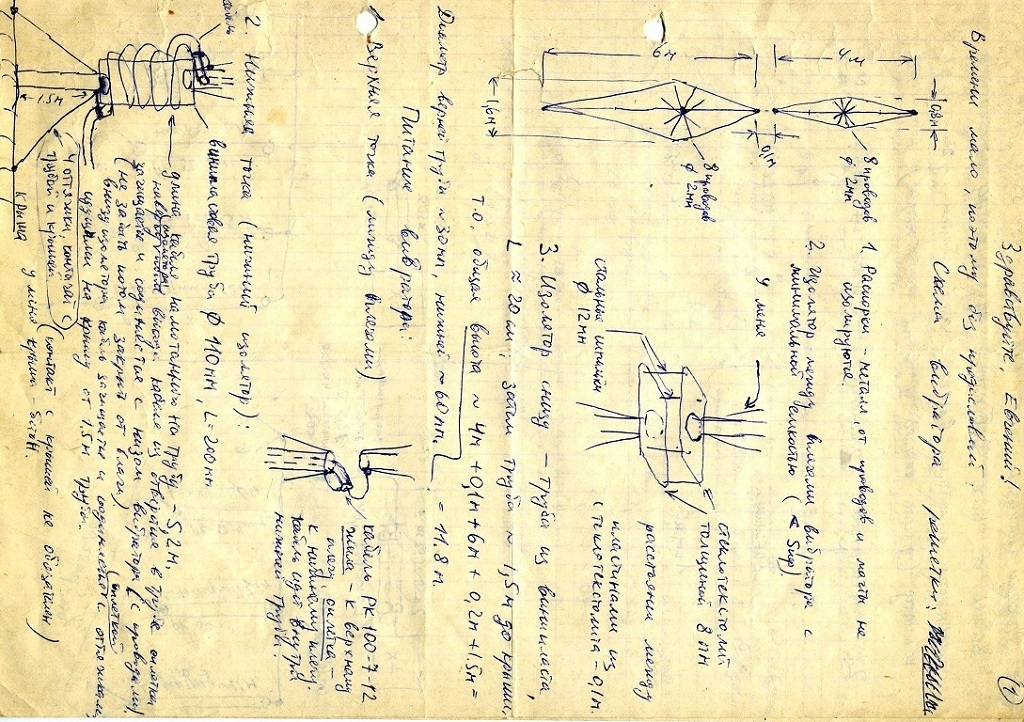 (1)
Здравствуйте, Евгений!
Времени мало, поэтому без предисловий:
Схема вибратора решетки:
0,8м
4 м
6 м
0,1м
1,6м
8 проводов
ϕ 2мм
8 проводов
ϕ 2мм
1. Распорки - металл, от проводов и мачты не
изолируются.
2. Изолятор между плечами вибратора с
минимальной емкостью (
У меня
стальные шпильки
ϕ 12мм
стеклотекстолит
толщиной 8мм
расстояние между
пластинами из
стеклотекстолита - 0,1м.
3. Изолятор снизу — труба из винипласта,
L ≈ 20см; затем труба ~ 1,5м до крыши,
т.о. общая высота ~ 4м + 0,1м + 6м + 0,2м + 1,5м =
= 11,8 м.
Диаметр верхней трубы ~ 30мм, нижней ~ 60мм.
Питание вибратора:
1. Верхняя точка (между плечами)
кабель РК 100-7-12
жила - к верхнему
плечу, оплетка -
к нижнему плечу;
кабель идет внутри
нижней трубы.
2. Нижняя точка (нижний изолятор):
кабель
винипластовая труба ϕ 110мм, L = 200мм
длина кабеля намотанного на трубу - 5,2м.
изолятора
выхода кабеля из отверстия в трубе оплетка
защищается и соединяется с низом вибратора (с проводами)
(не забыть потом закрыть от влаги)
внизу изолятора кабель зачищается и соединяется с оттяжками,
(оплеткой)
идущими на крышу от 1.5м трубы.
1.5м
4 оттяжки, контакт с
трубой и крышей
(контакт с крышей не обязателен)
крыша
у меня крыша - бетон.